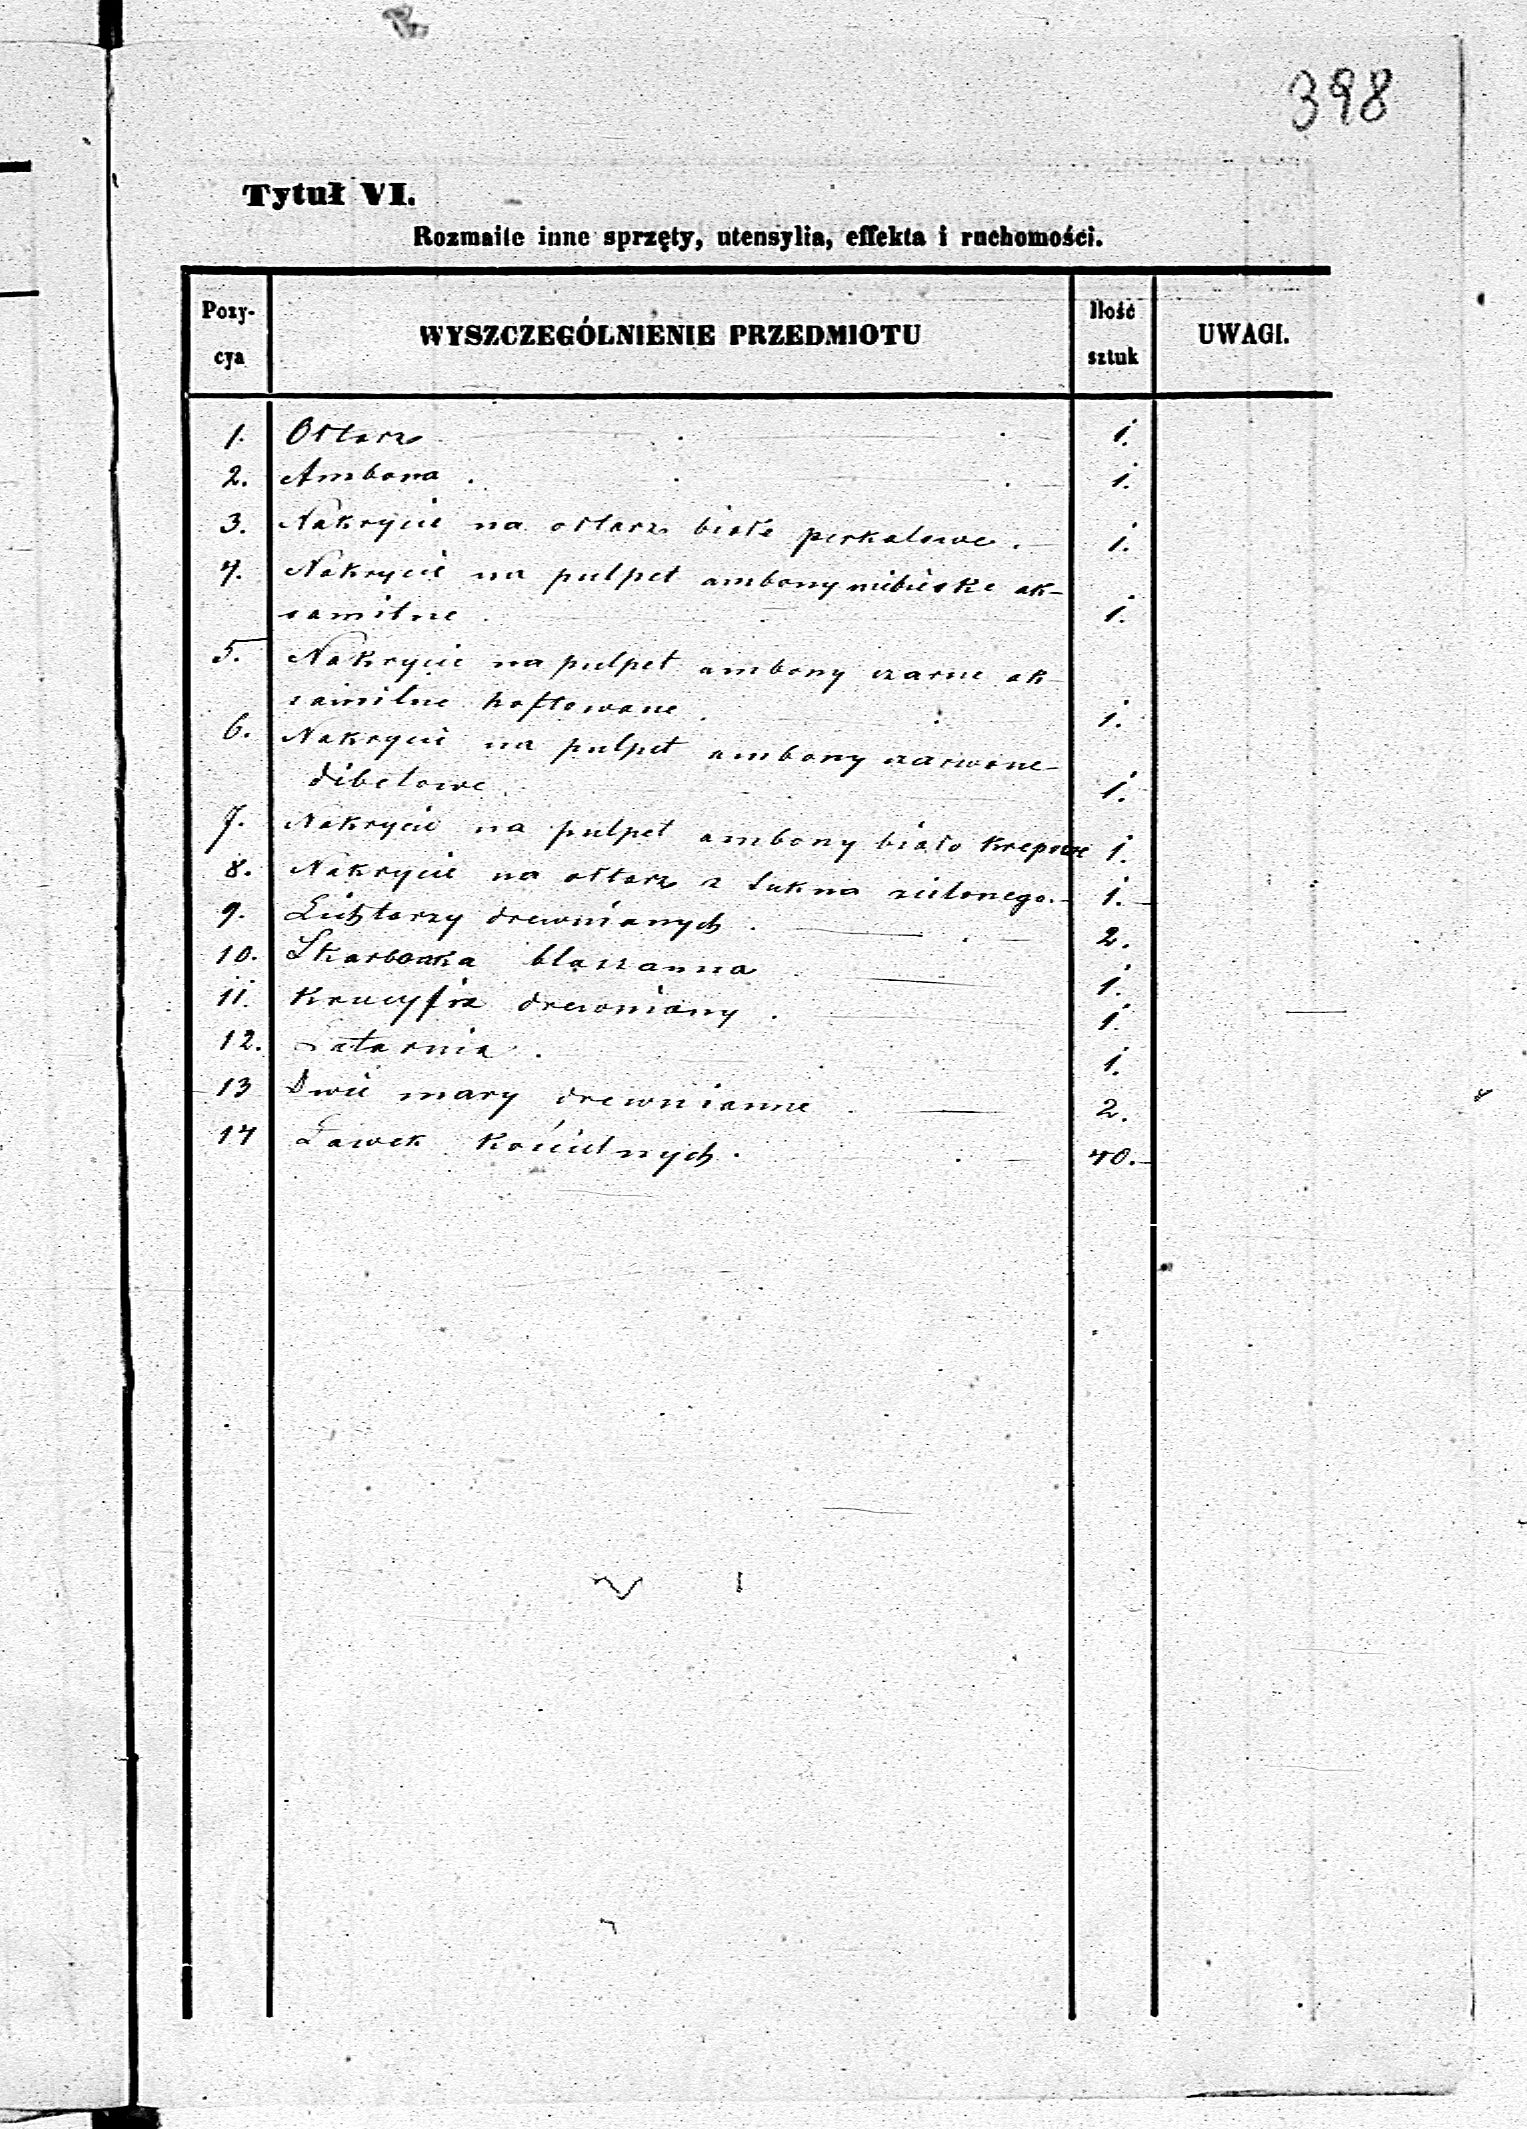 398
Tytuł VI.
Rozmaite inne sprzęty, utensylia, effekta i ruchomości.
Pozy-cya WYSZCZEGÓLNIENIE PRZEDMIOTU Ilość sztuk UWAGI.
1. Ołtarz 1.
2. Ambona 1.
3. Nakrycie na ołtarz białe perkalowe. 1.
4. Nakrycie na pulpet ambony niebieske ak-
samitne 1.
5. Nakrycie na pulpet ambony czarne ak-
samitne haftowane 1.
6. Nakrycie na pulpet ambony czerwone
dibetowe 1.
7. Nakrycie na pulpet ambony biało krepowe 1.
8. Nakrycie na ołtarz z sukna zielonego. 1.
9. Lichtarzy drewnianych 2.
10. Skarbonka blaszanna 1.
11. Krucyfix drewniany 1.
12. Latarnia 1.
13 Dwie mary drewnianne 2.
14 Ławek kościelnych 40.